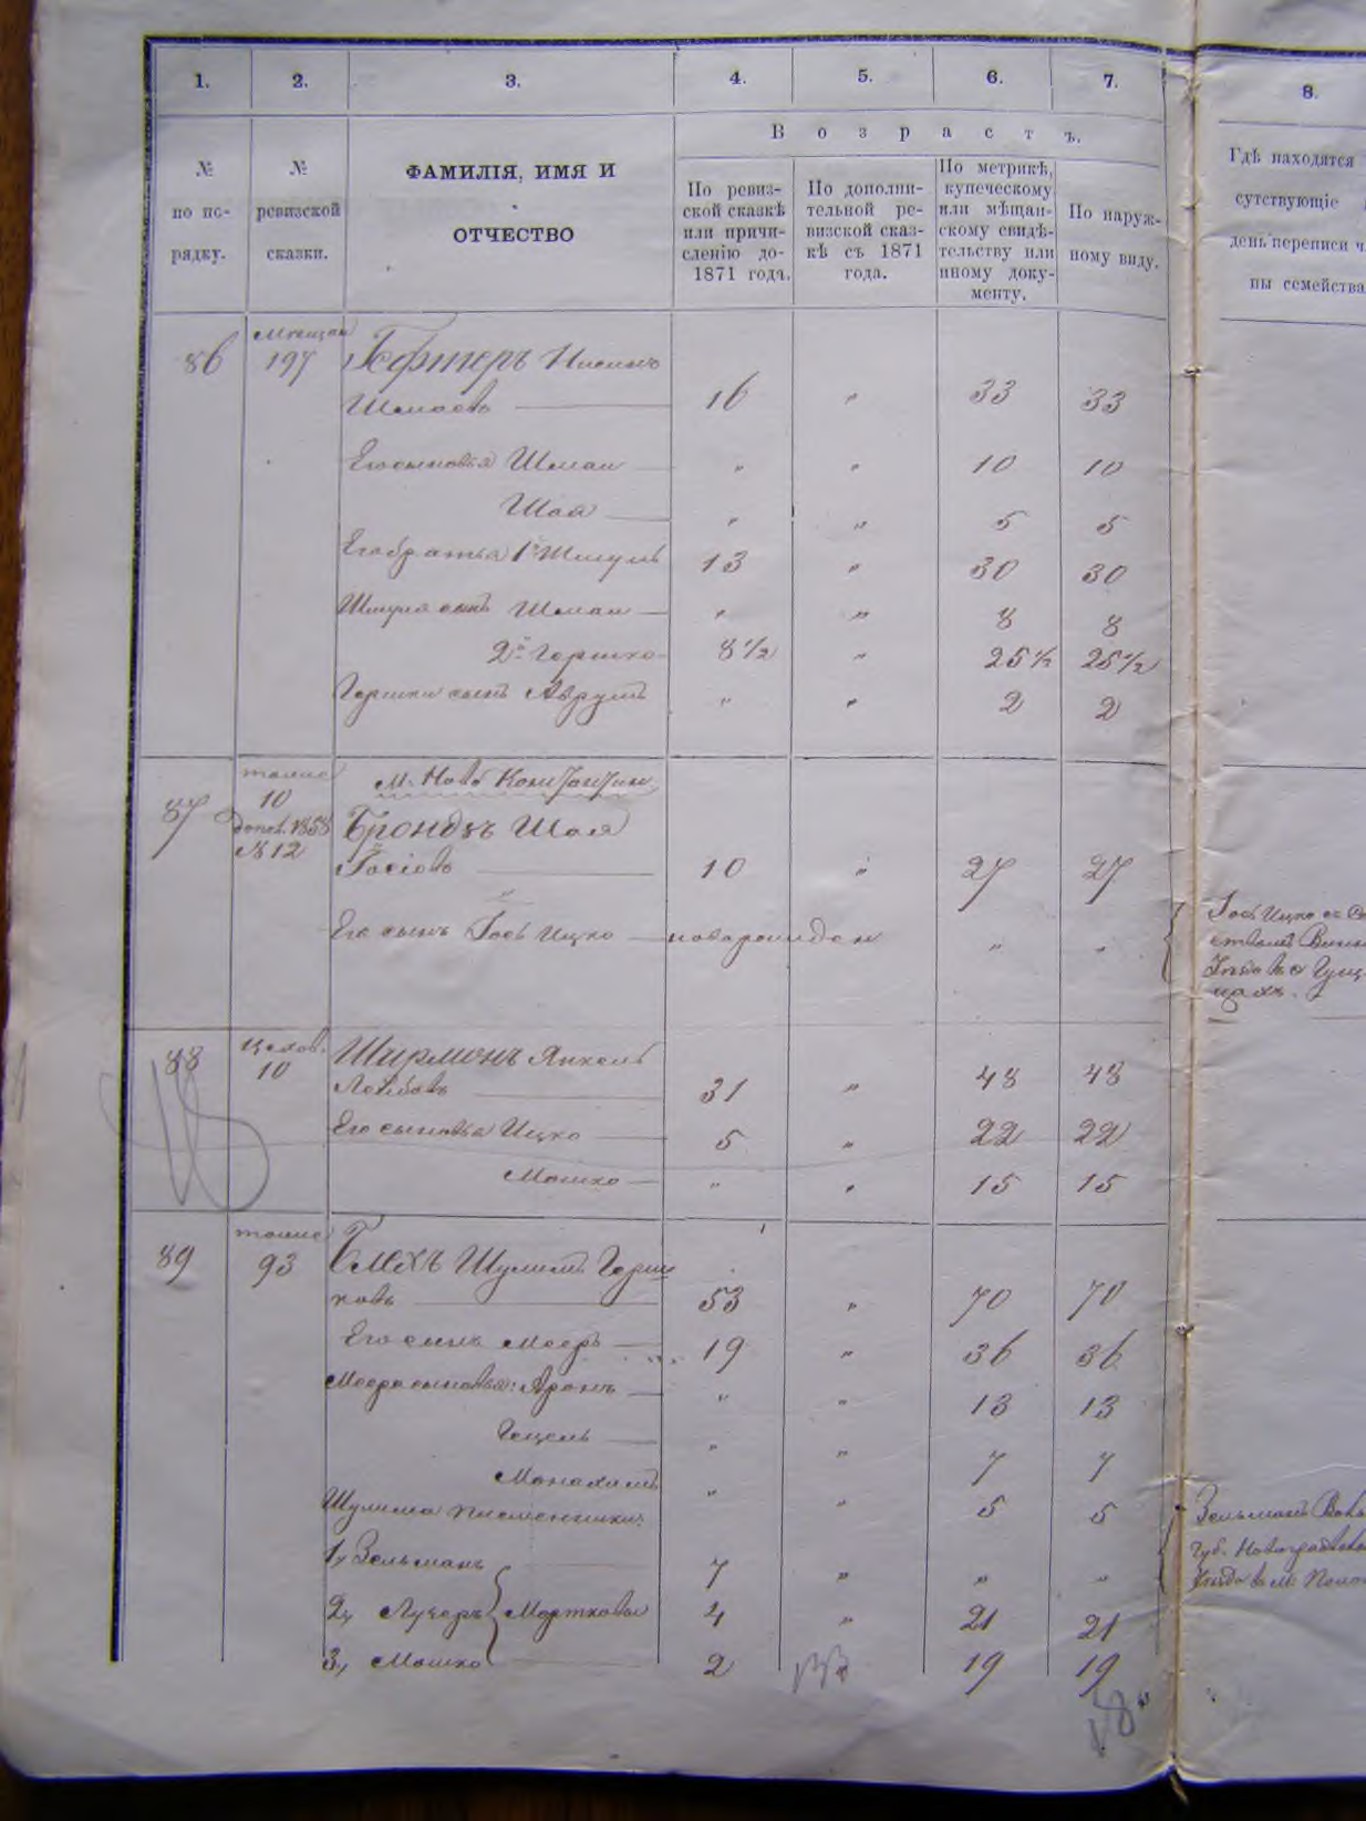 1. 2. 3. 4. 5. 6. 7. 8.
В о з р а с т ъ.
№ по по-рядку.
№ ревизской сказки.
ФАМИЛІЯ, ИМЯ И
ОТЧЕСТВО
По ревиз-
ской сказкѣ
или причи-
сленію до-
1871 года.
По дополни-
тельной ре-
визской сказ-
кѣ съ 1871
года.
По метрикѣ,
купеческому
или мѣщан-
скому свидѣ-
тельству или
иному доку-
менту.
По наруж-
ному виду.
Гдѣ находятся
сутствующіе
день переписи ч
ны семейства
86 197 Гефтеръ Нисинъ
Шмаевъ 16 „ 33 33
Его сыновья Шмаи „ „ 10 10
Шая „ „ 5 5
Его братья 1й Шмуль 13 „ 30 30
Шмуля сынъ Шмаи „ „ 8 8
2й Гершко 8½ „ 25½ 25½
Гершки сынъ Аврумъ „ „ 2 2
тоже
87 10 М. Ново Константин.
допол. 1858 Брондзъ Шая
№ 12
Іосіовъ 10 „ 27 27
Его сынъ Іось Ицко новорожден „ „
Іось Ицко
88 Цехов. 10 Ширманъ Янкель
Лейбовъ 31 „ 48 48
Его сыновья Ицко 5 „ 22 22
Мошко „ „ 15 15
тоже
89 93 Блехъ Шулимъ Герш
ковъ 53 „ 70 70
Его сынъ Мееръ 19 „ 36 36
Меера сыновья: Аронъ „ „ 13 13
Гецель „ „ 7 7
Монахимъ „ „ 5 5
Шулима племенники:
1, Зельманъ 7 „ „ „
2, Лузеръ } Мортковы 4 „ 21 21
3, Мошко 2 „ 19 19
Зельманъ
Губ.